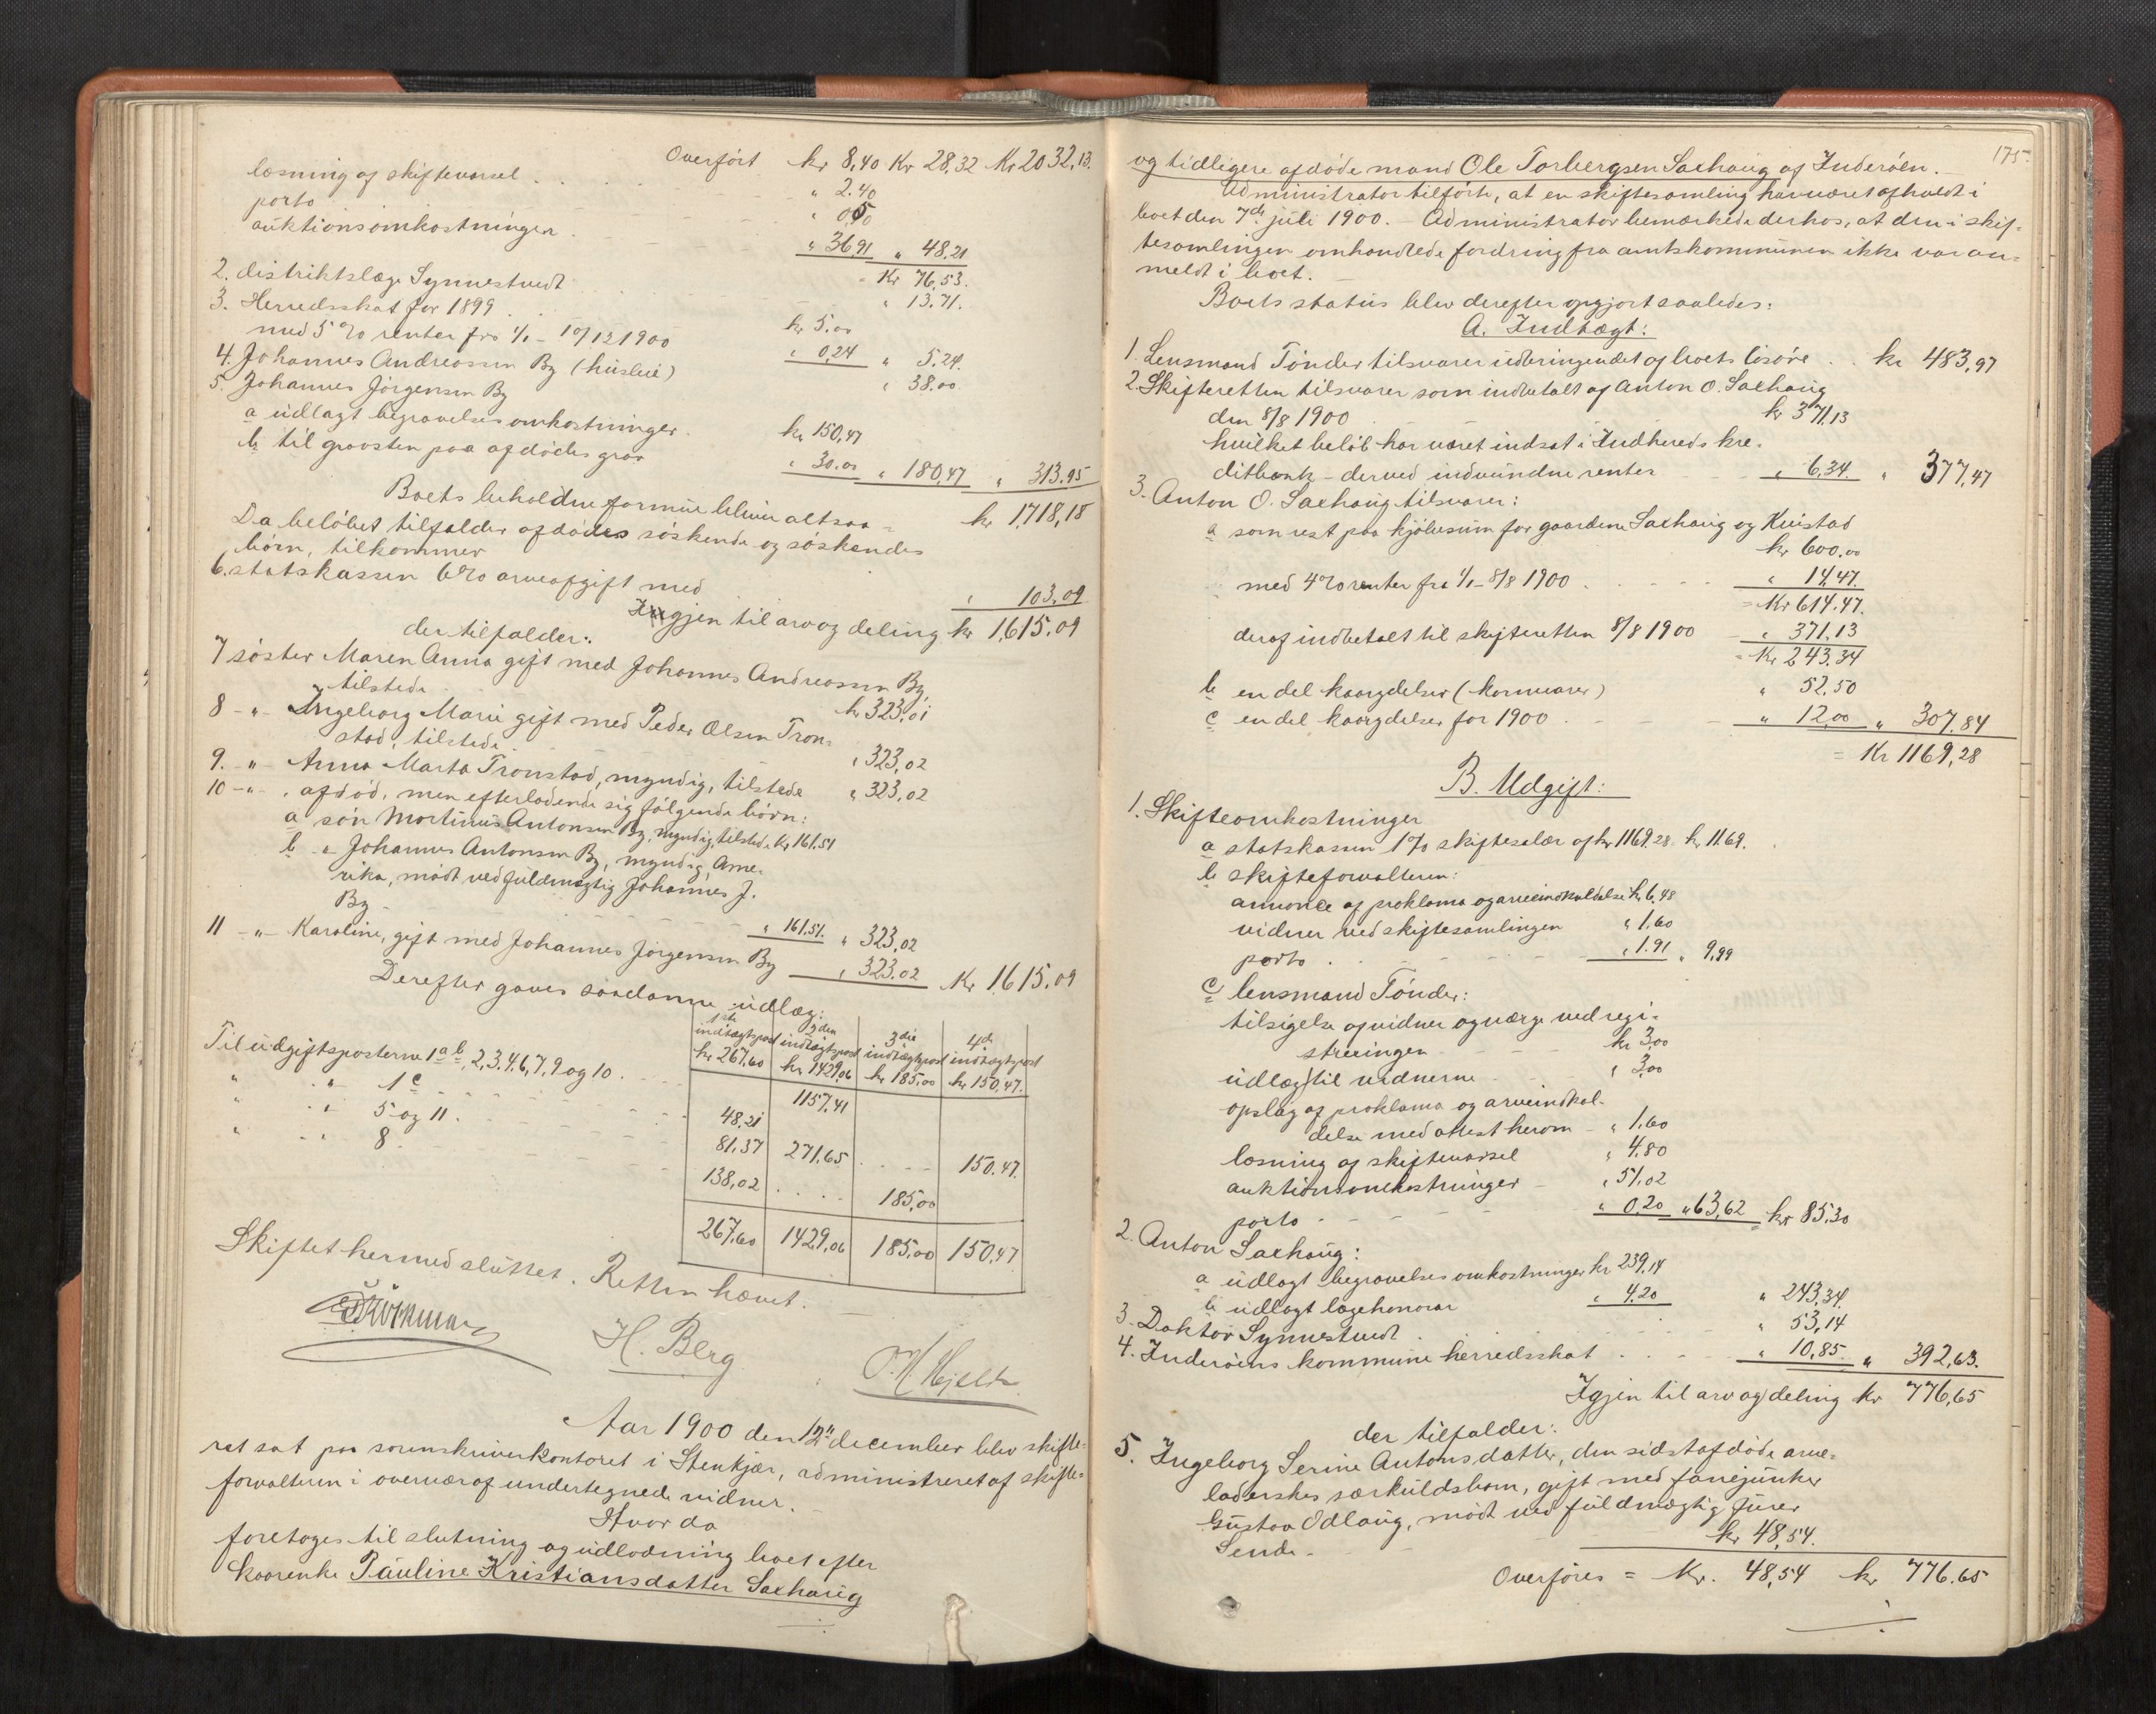 Overført kr 8,40 Kr 28,32 Kr 2032,13.
læsning af skiftevarsel . . . " 2.40
porto " 0,50
auktionsomkostninger . " 36,91 " 48,21
= Kr 76,53.
2. distriktslæge Synnestvedt " 13.71.
3. Herredsskat for 1899 . . kr 5.00
med 5 % renter fra 1/1 - 10/12 1900 " 0,24 " 5,24.
4. Johannes Andreassen By (husleie) " 38.00.
5. Johannes Jørgensen By
a udlagt begravelsesomkostninger . kr 150,47
b til gravsten paa afdødes grav " 30.00 " 180,47 " 313.95
Boets beholdne formue bliver altsaa = kr 1,718,18
Da beløbet tilfalder afdødes søskende og søskendes
børn, tilkommer
6. statskassen 6% arveafgift med " 103,09
Igjen til arv og deling kr 1,615.09
der tilfalder:
7 søster Maren Anna gift med Johannes Andreassen By,
tilstede kr 323,01
8 -"- Ingeborg Marie gift med Peder Olsen Tron-
stad, tilstede . " 323,02
9. -"- Anna Marta Tronstad, myndig, tilstede " 323,02
10 -"- , afdød, men efterladende sig følgende børn:
a søn Martinus Antonsen By, myndig, tilstede Kr 161.51
b " Johannes Antonsen By, myndig, Ame-
rika, mødt ved fuldmægtig Johannes J.
By - " 161.51. " 323,02
11 -"- Karoline, gift med Johannes Jørgensen By " 323.02 Kr 1,615.09
Derefter gaves saadanne udlæg:
1ste indtægtspost kr 267,60 2den indtægtspost kr 1429,06 3die indtægtspost kr 185,00 4de indtægtspost kr 150,47.
Til udgiftsposterne 1 a b, 2, 3, 4, 6, 7, 9 og 10 . . . 1157,41
" " 1 c 48,21
" " 5 og 11 . 81,37 271,65 . . . . 150.47.
" " 8 138,02 . . . . 185,00
267,60 1429,06 185,00 150,47
Skiftet hermed sluttet. Retten hævet.
H. Berg
Aar 1900 den 12te december blev skifte-
ret sat paa sorenskriverkontoret i Stenkjær, administreret af skifte-
forvalteren i overvær af undertegnede vidner.
Hvor da
foretoges til slutning og udlodning boet efter
kaarenke Pauline Kristiansdatter Saxhaug
175.
og tidligere afdøde mand Ole Torbergsen Saxhaug af Inderøen.
Administrator tilførte, at en skiftesamling har været afholdt i
boet den 7de juli 1900. - Administrator bemærkede derhos, at den i skif-
tesamlingen omhandlede fordring fra amtskommunen ikke var an-
meldt i boet. -
Boets status blev derefter opgjort saaledes:
A. Indtægt:
1. Lensmand Tønder tilsvarer udbringendet af boets løsøre . . kr 483,97
2. Skifteretten tilsvarer som indbetalt af Anton O. Saxhaug
den 8/8 1900 kr 371,13
hvilket beløb har været indsat i Indhereds kre-
ditbank - derved indvundne renter " 6,34. " 377,47
3. Anton O. Saxhaug tilsvarer:
a som rest paa kjøbesum for gaardene Saxhaug og Kvistad
kr 600.00
med 4 % renter fra 1/1 - 8/8 1900 . " 14,47.
= Kr 614,47.
deraf indbetalt til skifteretten 8/8 1900 " 371,13
= Kr 243.34
b en del kaarydelser (kornvarer) " 52.50
c en del kaarydelser for 1900 . " 12,00 " 307,84
= Kr 1169,28
B. Udgift:
1. Skifteomkostninger
a statskassen 1% skiftesalær af kr 1169.28 kr 11.69.
b skifteforvalteren:
annonce af proklama og arveindkaldelse kr 6,48
vidner ved skiftesamlingen " 1,60
porto . " 1.91 " 9,99
c lensmand Tønder:
tilsigelse af vidner og værge ved regi-
streringen kr 3,00
udlæg til vidnerne " 3,00
opslag af proklama og arveindkal-
delse med attest herom - " 1,60
læsning af skiftevarsel " 4,80
auktionsomkostninger - " 51,02
porto - " 0,20 " 63,62 kr 85,30
2. Anton Saxhaug:
a udlagt begravelsesomkostninger kr 239,14
b udlagt lægehonorar " 4.20 " 243,34.
3. Doktor Synnestvedt . " 53,14
4. Inderøens kommune herredsskat " 10,85. " 392,63.
Igjen til arv og deling kr 776,65
der tilfalder:
5. Ingeborg Serine Antonsdatter, den sidstafdøde arve-
laderskes særkuldsbarn, gift med fanejunker
Gustav Odlaug, mødt ved fuldmægtig furer
Sende - kr 48,54.
Overføres = Kr. 48,54 kr 776.65